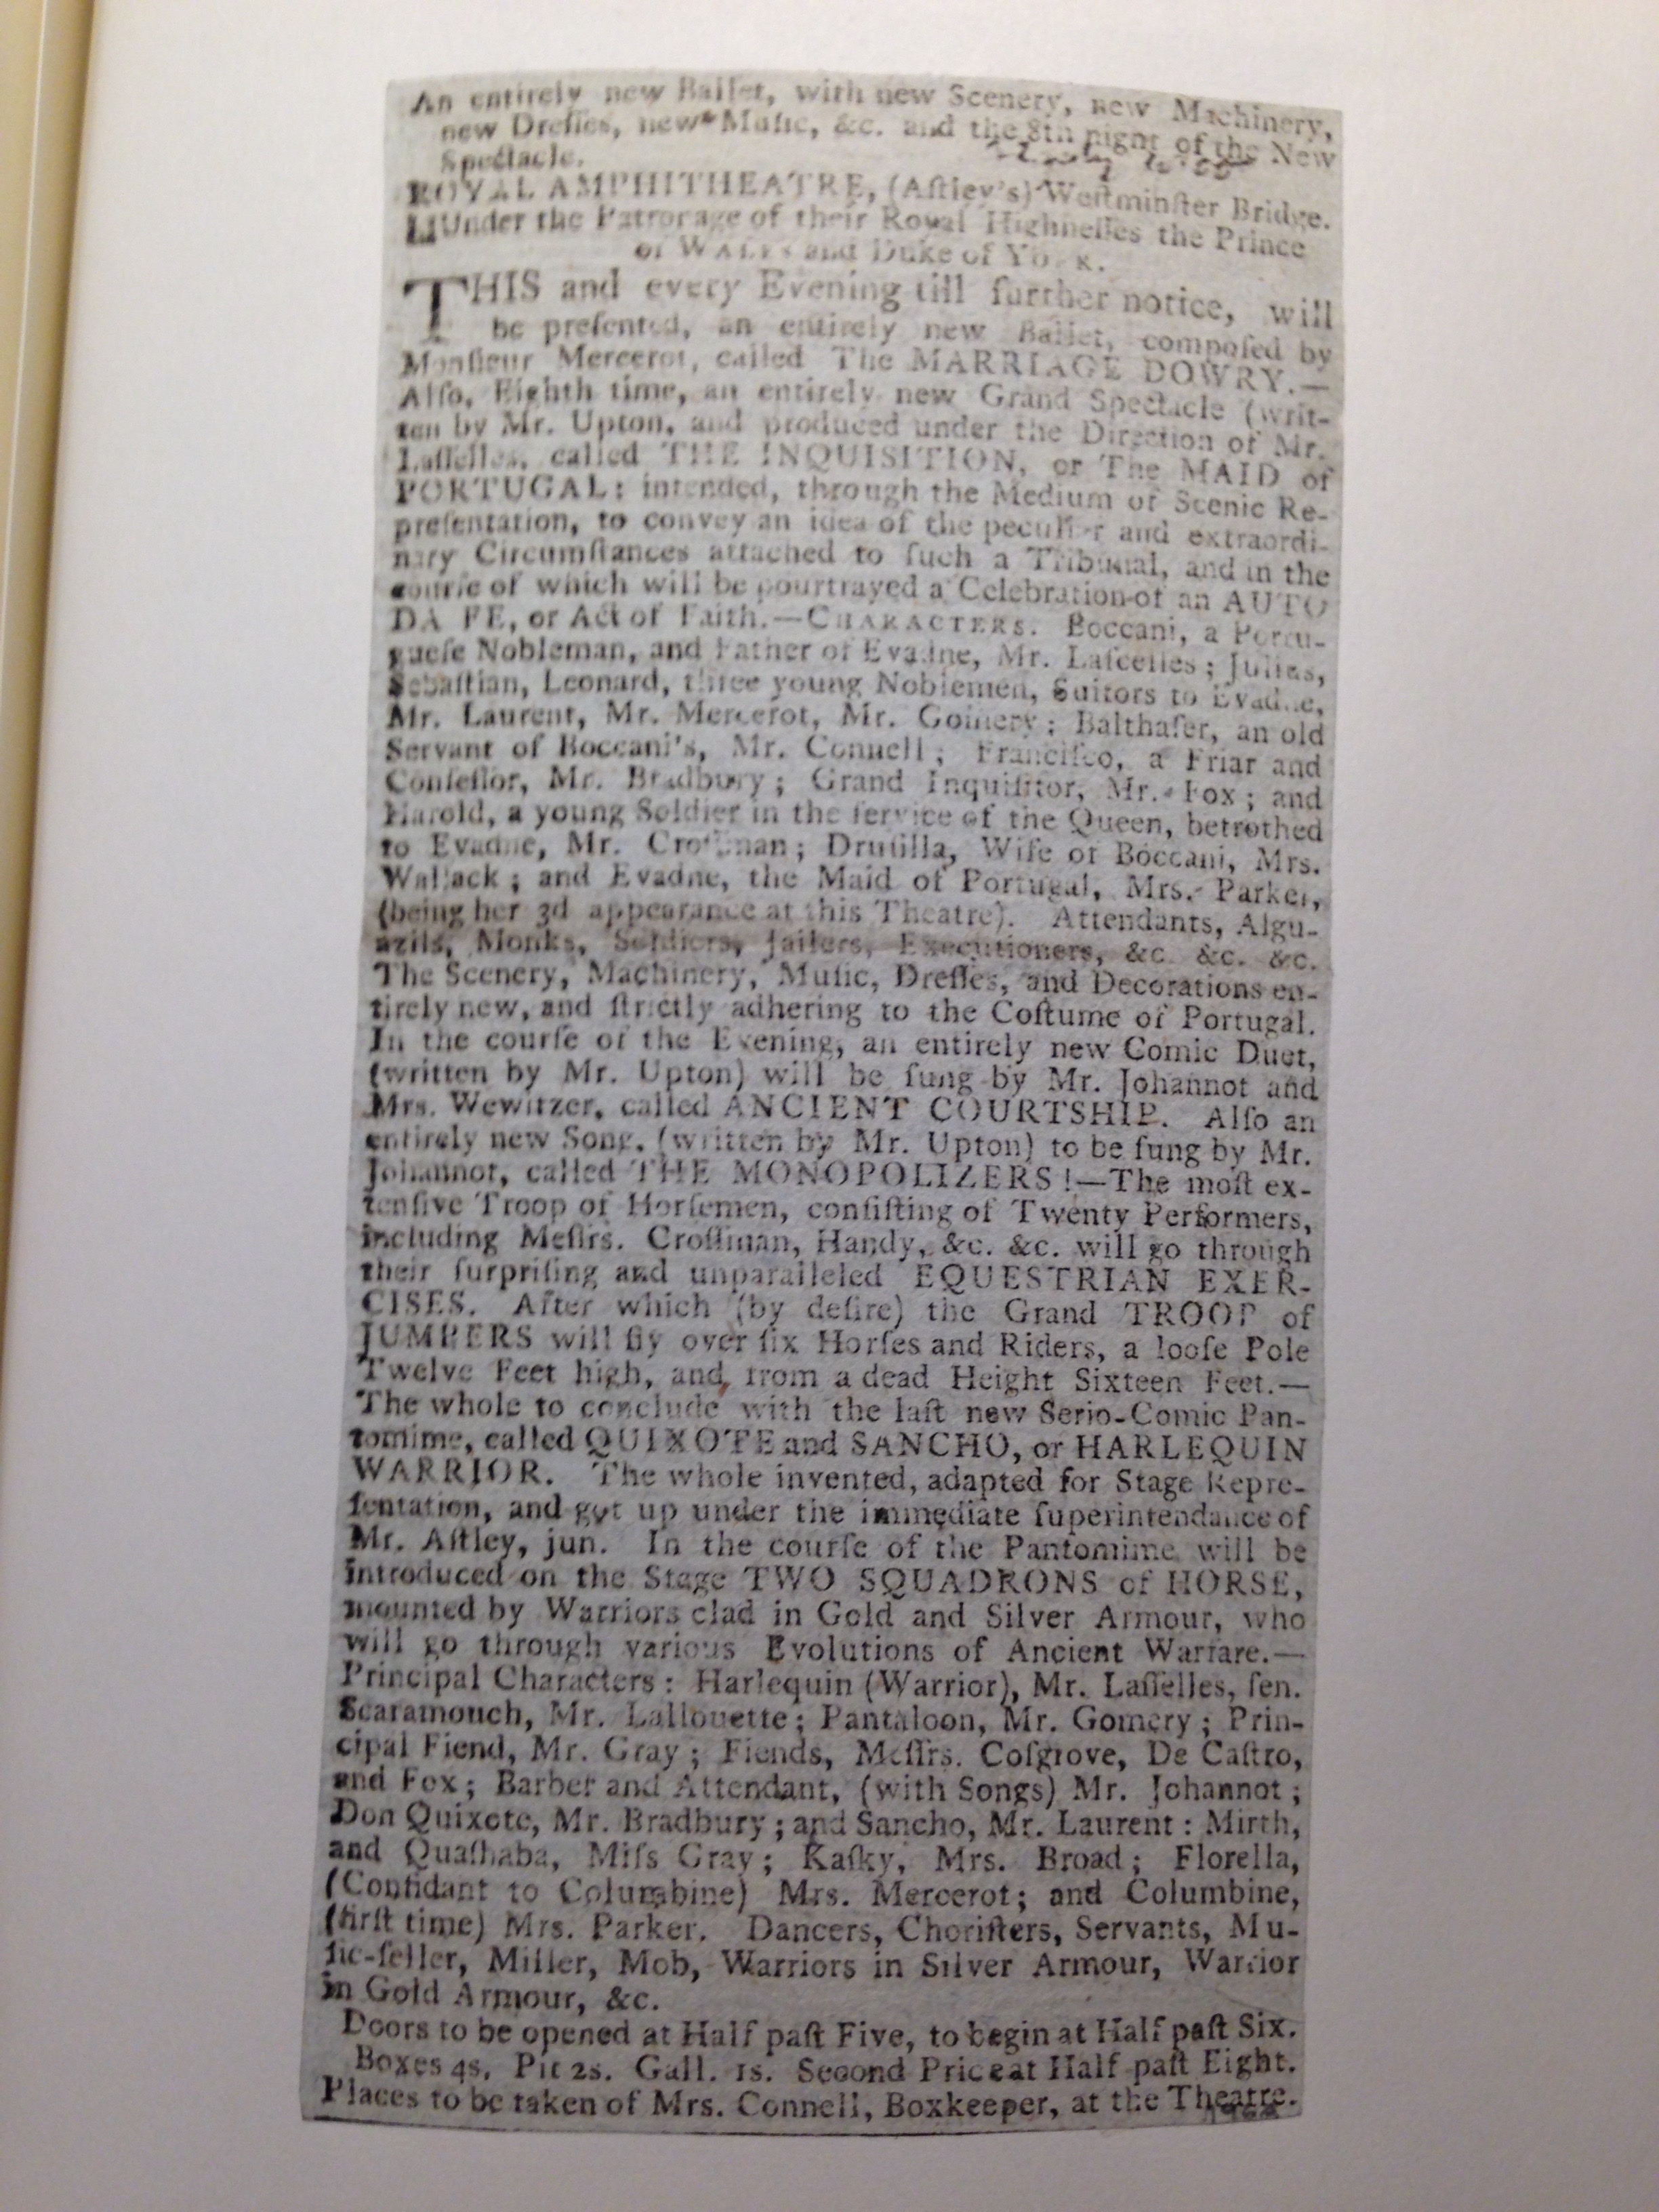 An entirely new Ballet, with new Scenery, new Machinery,
new Dreſſes, new Muſic, &c. and the 8th night of the New
Spectacle.
ROYAL AMPHITHEATRE, (Aſtley's) Weſtminſter Bridge.
Under the Patronage of their Royal Highneſſes the Prince
of WALES and Duke of YORK.
THIS and every Evening till further notice, will
be preſented, an entirely new Ballet, compoſed by
Monſieur Mercerot, called The MARRIAGE DOWRY.—
Alſo, Eighth time, an entirely new Grand Spectacle (writ-
ten by Mr. Upton, and produced under the Direction of Mr.
Laſſelles, called THE INQUISITION, or The MAID of
PORTUGAL: intended, through the Medium of Scenic Re-
preſentation, to convey an idea of the peculiar and extraordi-
nary Circumſtances attached to ſuch a Tribunal, and in the
courſe of which will be pourtrayed a Celebration of an AUTO
DA FE, or Act of Faith.—CHARACTERS. Boccani, a Portu-
gueſe Nobleman, and Father of Evadne, Mr. Laſcelles; Julias,
Sebaſtian, Leonard, three young Noblemen, Suitors to Evadne,
Mr. Laurent, Mr. Mercerot, Mr. Gomery; Balthaſer, an old
Servant of Boccani's, Mr. Connell; Franciſco, a Friar and
Confeſſor, Mr. Bradbury; Grand Inquiſitor, Mr. Fox; and
Harold, a young Soldier in the ſervice of the Queen, betrothed
to Evadne, Mr. Croſſman; Druſilla, Wife of Boccani, Mrs.
Wallack; and Evadne, the Maid of Portugal, Mrs. Parker,
(being her 3d appearance at this Theatre). Attendants, Algu-
azils, Monks, Soldiers, Jailers, Executioners, &c. &c. &c.
The Scenery, Machinery, Muſic, Dreſſes, and Decorations en-
tirely new, and ſtrictly adhering to the Coſtume of Portugal.
In the courſe of the Evening, an entirely new Comic Duet,
(written by Mr. Upton) will be ſung by Mr. Johannot and
Mrs. Wewitzer, called ANCIENT COURTSHIP. Alſo an
entirely new Song, (written by Mr. Upton) to be ſung by Mr.
Johannot, called THE MONOPOLIZERS!—The moſt ex-
tenſive Troop of Horſemen, conſiſting of Twenty Performers,
including Meſſrs. Croſſman, Handy, &c. &c. will go through
their ſurpriſing and unparalleled EQUESTRIAN EXER-
CISES. After which (by deſire) the Grand TROOP of
JUMPERS will fly over ſix Horſes and Riders, a looſe Pole
Twelve Feet high, and from a dead Height Sixteen Feet.—
The whole to conclude with the laſt new Serio-Comic Pan-
tomime, called QUIXOTE and SANCHO, or HARLEQUIN
WARRIOR. The whole invented, adapted for Stage Repre-
ſentation, and got up under the immediate ſuperintendance of
Mr. Aſtley, jun. In the courſe of the Pantomime will be
introduced on the Stage TWO SQUADRONS of HORSE,
mounted by Warriors clad in Gold and Silver Armour, who
will go through various Evolutions of Ancient Warfare.—
Principal Characters: Harlequin (Warrior), Mr. Laſſelles, ſen.
Scaramouch, Mr. Lallouette; Pantaloon, Mr. Gomery; Prin-
cipal Fiend, Mr. Gray; Fiends, Meſſrs. Coſgrove, De Caſtro,
and Fox; Barber and Attendant, (with Songs) Mr. Johannot;
Don Quixote, Mr. Bradbury; and Sancho, Mr. Laurent: Mirth,
and Quaſhaba, Miſs Gray; Kaſky, Mrs. Broad; Florella,
(Confidant to Columbine) Mrs. Mercerot; and Columbine,
(firſt time) Mrs. Parker. Dancers, Choriſters, Servants, Mu-
ſic-ſeller, Miller, Mob, Warriors in Silver Armour, Warrior
in Gold Armour, &c.
Doors to be opened at Half paſt Five, to begin at Half paſt Six.
Boxes 4s. Pit 2s. Gall. 1s. Second Price at Half paſt Eight.
Places to be taken of Mrs. Connell, Boxkeeper, at the Theatre.